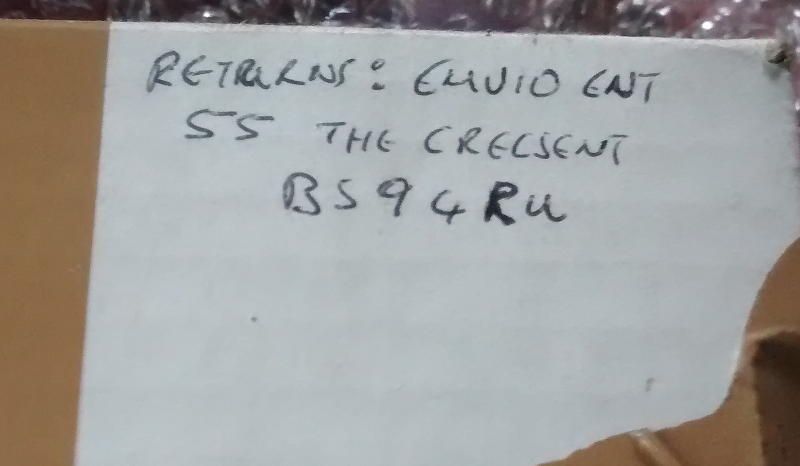 RETURNS: EMVIO ENT
55 THE CRECSENT
BS9 4RU